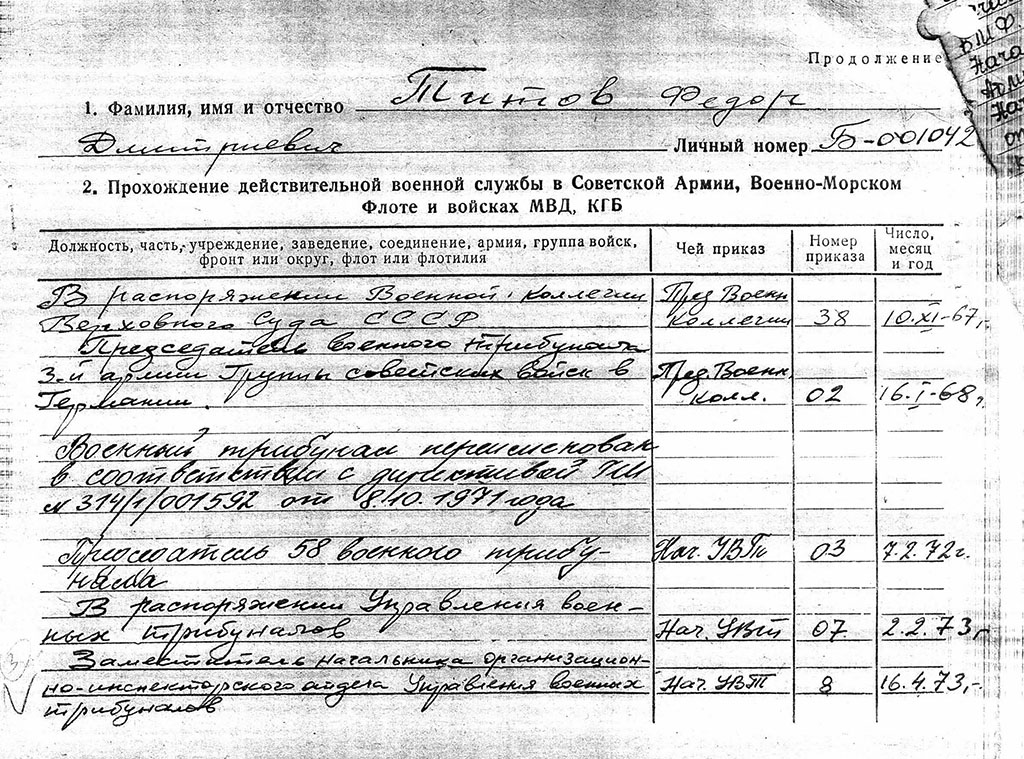 Продолжение
1. Фамилия, имя и отчество Титов Федор
Дмитриевич Личный номер Б-001042
2. Прохождение действительной военной службы в Советской Армии, Военно-Морском
Флоте и войсках МВД, КГБ
Должность, часть, учреждение, заведение, соединение, армия, группа войск,
фронт или округ, флот или флотилия
Чей приказ
Номер
приказа
Число,
месяц
и год
В распоряжении Военной коллегии Пред. Военн.
Верховного Суда СССР коллегии 38 10.XI-67г.
Председатель военного трибунала
3-й армии Группы советских войск в Пред. Военн.
Германии. колл. 02 16.I-68г.
Военный трибунал переименован
в соответствии с директивой ГШ
№ 314/1/001592 от 8.10.1971 года
Председатель 58 военного трибу- Нач. УВТ 03 7.2.72г.
нала
В распоряжении Управления воен-
ных трибуналов Нач. УВТ 07 2.2.73г.
Заместитель начальника организацион-
но-инспекторского отдела Управления военных Нач. УВТ 8 16.4.73г.
трибуналов